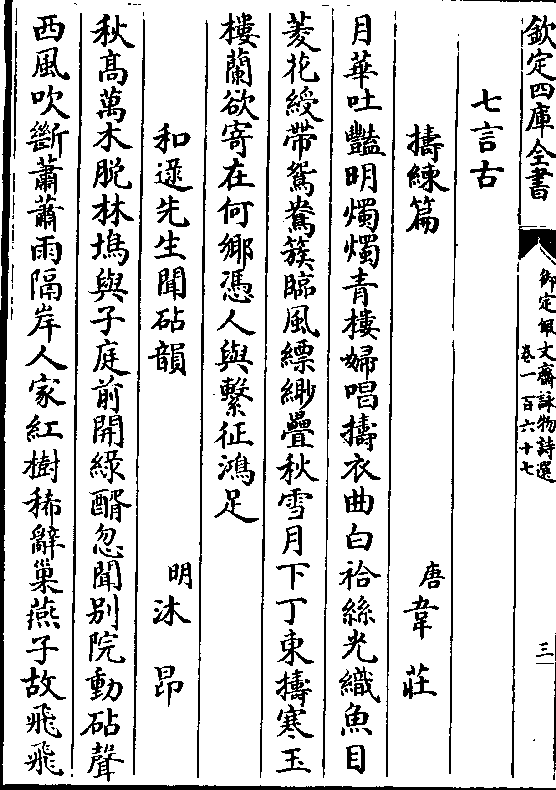 欽定四庫全書
御定佩文齋詠物詩選
卷一百六十七
三
七言古
擣練篇
唐韋莊
月華吐豔明燭燭青樓婦唱擣衣曲白袷絲光織魚目
菱花綬帶鴛鴦簇臨風縹緲疊秋雪月下丁東擣寒玉
樓蘭欲寄在何鄉憑人與繫征鴻足
和逯先生聞砧韻
明沐昂
秋高萬木脫林塢與子庭前開綠醑忽聞別院動砧聲
西風吹斷蕭蕭雨隔岸人家紅樹稀辭巢燕子故飛飛